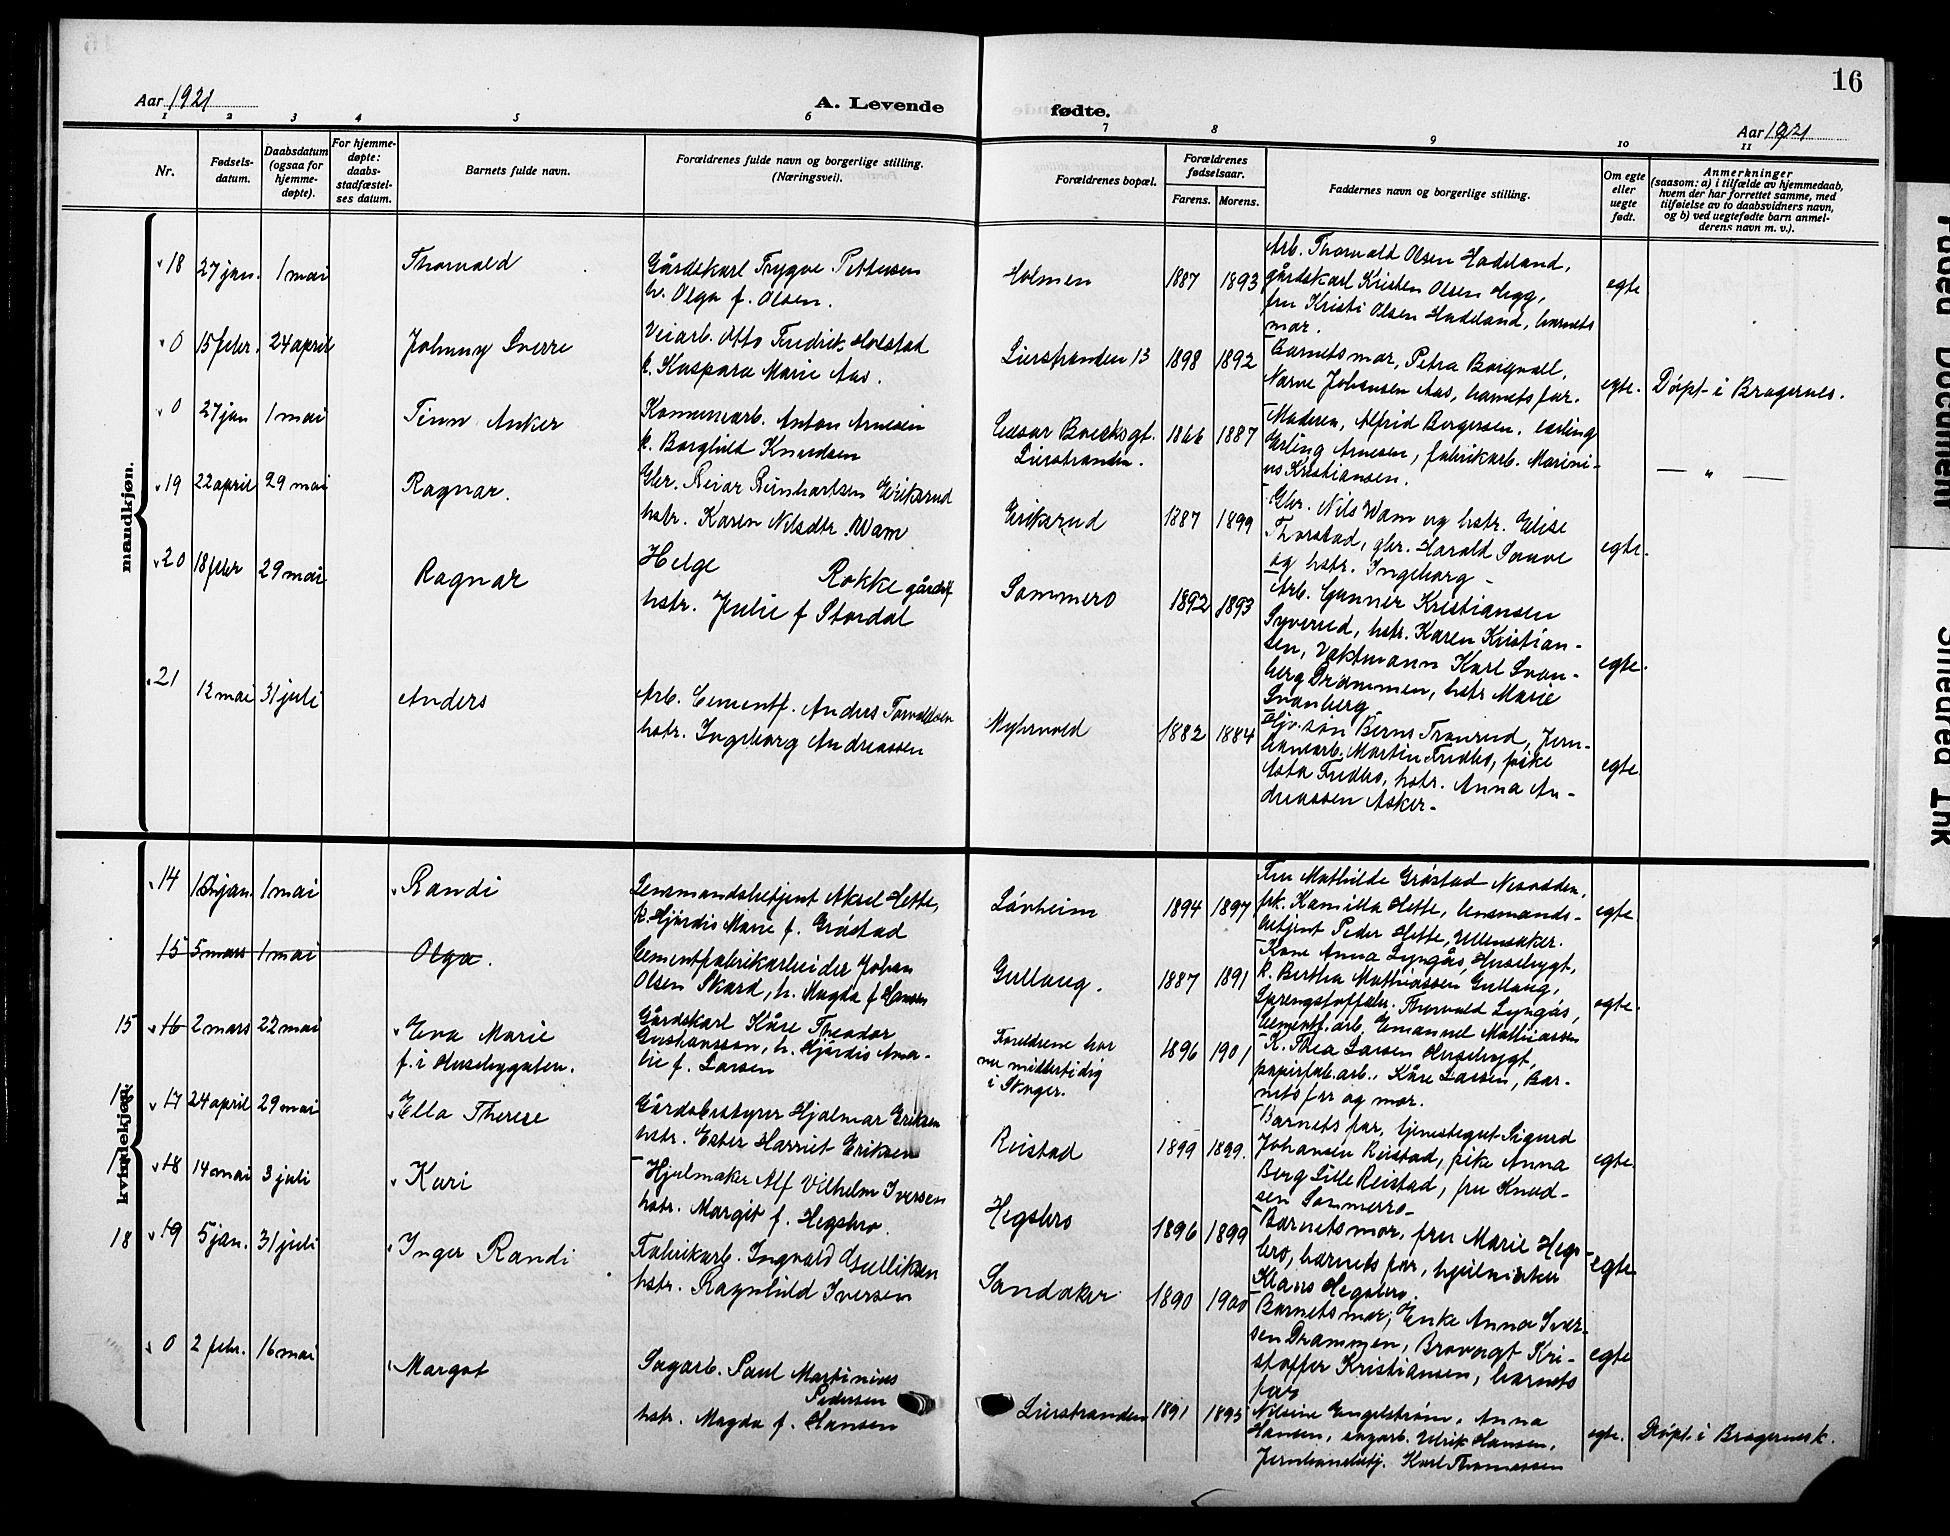 16
Aar 1921
A. Levende
fødte.
Aar 1921
1 2 3 4 5 6 7 8 9 10 11
Nr.
Fødsels-
datum.
Daabsdatum
(ogsaa for
hjemme-
døpte).
For hjemme-
døpte:
daabs-
stadfæstel-
ses datum.
Barnets fulde navn.
Forældrenes fulde navn og borgerlige stilling.
(Næringsvei).
Forældrenes bopæl.
Forældrenes
fødselsaar.
Farens. Morens.
Faddernes navn og borgerlige stilling.
Om egte
eller
uegte
født.
Anmerkninger
(saasom: a) i tilfælde av hjemmedaab,
hvem der har forrettet samme, med
tilføielse av to daabsvidners navn,
og b) ved uegtefødte barn anmel-
derens navn m. v.).
mandkjøn.
18 27 jan. 1 mai Thorvald
Gårdskarl Trygve Pettersen
h. Olga f. Olsen.
Holmen 1887 1893
Arb. Thorvald Olsen Hadeland,
gårdskarl Kristen Olsen Hegg,
fru Kristi Olsen Hadeland, barnets
mor.
egte
0 15 febr. 24 april Johnny Sverre
Veiarb. Otto Fredrik Holstad
k. Kaspara Marie Aas.
Lierstranden 13 1898 1892
Barnets mor, Petra Borgvall,
Narve Johansen Aas, barnets far.
egte. Døpt i Bragernes.
0 27 jan 1 mai Finn Anker
Kommunearb. Anton Arnesen
k. Borghild Knudsen
Cesar Boecksgt.
Lierstranden.
1866 1887
Moderen, Alfrid Borgersen, lærling
Erling Arnesen, fabrikarb. Marini-
us Kristiansen.
— " —
19 22 april 29 mai Ragnar.
Gbr. Reinhartsen Eriksrud
hstr. Karen Nilsdtr. Wam
Eriksrud 1887 1899
Gbr. Nils Wam og hstr. Elise
Thorstad, gbr. Harald
og hstr. Ingeborg -
egte.
20 18 febr 29 mai Ragnar
Helge Rokke
hstr. Julie f Stordal
Sommero 1892 1893
Arb. Gunner Kristiansen
Syverud, hstr. Karen Kristian-
sen, Vaktmann Karl Svan-
berg Drammen, hstr Marie
Svanberg
egte.
21 12 mai 31 juli Anders
Arb. Cementf. Anders Torvaldsen
hstr. Ingeborg Andreassen
Myhrvold 1882 1884
Berns Tranrud, Jern-
banearb. Martin Fredbo, pike
Asta Fredbo, hstr. Anna An-
dreassen Asker-
egte
kvindekjøn.
14 jan. 1 mai Randi
Lensmandsbetjent Aksel Hette,
k. Hjørdis Marie f. Grøstad
Løvheim 1894 1897
Fru Mathilde Grøstad Nesodden,
frk. Kamilla Hette, lensmands-
betjent Peder Hette, Ullensaker.
egte
15 5 mars 1 mai Olga.
Cementfabrikarbeider Johan
Olsen Skard, h. Magda f Hansen
Gullaug. 1887 1891
Kone Anna Lyngås, Husebygt,
k. Bertha Mathiassen Gullaug,
Sprengstoffabr. Thorvald Lyngås,
Cementf. arb. Emanuel Mathiassen
egte.
15 16 2 mars 22 mai Eva Marie
f. i Husebygaten.
Gårdskarl Kåre Theodor
h. Hjørdis Ama-
lie f. Larsen
Foreldrene bor
nu midlertidig
i
1896 1901
K. Thea Larsen Husebygt,
papirfab. arb. Kåre Larsen, Bar-
nets far og mor.
17 24 april 29 mai Ella Therese
Gårdsbestyrer Hjalmar Eriksen
hstr. Ester Harriet Eriksen
Reistad 1899 1899.
Barnets far, tjenestegut Sigurd
Johansen Reistad, pike Anna
Berg Lille Reistad, fru Knud-
sen Sommerro-
egte.
18 14 mai 3 juli Kari
Hjulmaker Alf Vilhelm Iversen
hstr. Margit f. Hegsbro.
Hegsbro 1896 1899
Barnets mor, fru Marie Hegs-
bro, barnets far, hjulmaker
Klaus Hegsbro.
egte
18 19 5 jan. 31 juli Inger Randi
Fabrikarb. Ingvald Gulliksen
hstr. Ragnhild Iversen
Sandaker 1890 1900
Barnets mor, Enke Anna Iver-
sen Drammen, Brovagt Kri-
stoffer Kristiansen, barnets
far
egte
0 2 febr. 16 mai Margot
Sagarb. Paul Martinius
Pedersen
hstr. Magda f. Hansen
Lierstranden 1891 1895
Nilsine Engelstrøm, Anna
Hansen, sagarb. Ulrik Hansen,
Jernbanebetj. Karl Thomassen
egte. Døpt i Bragernesk.
Faded Document
Smeared Ink